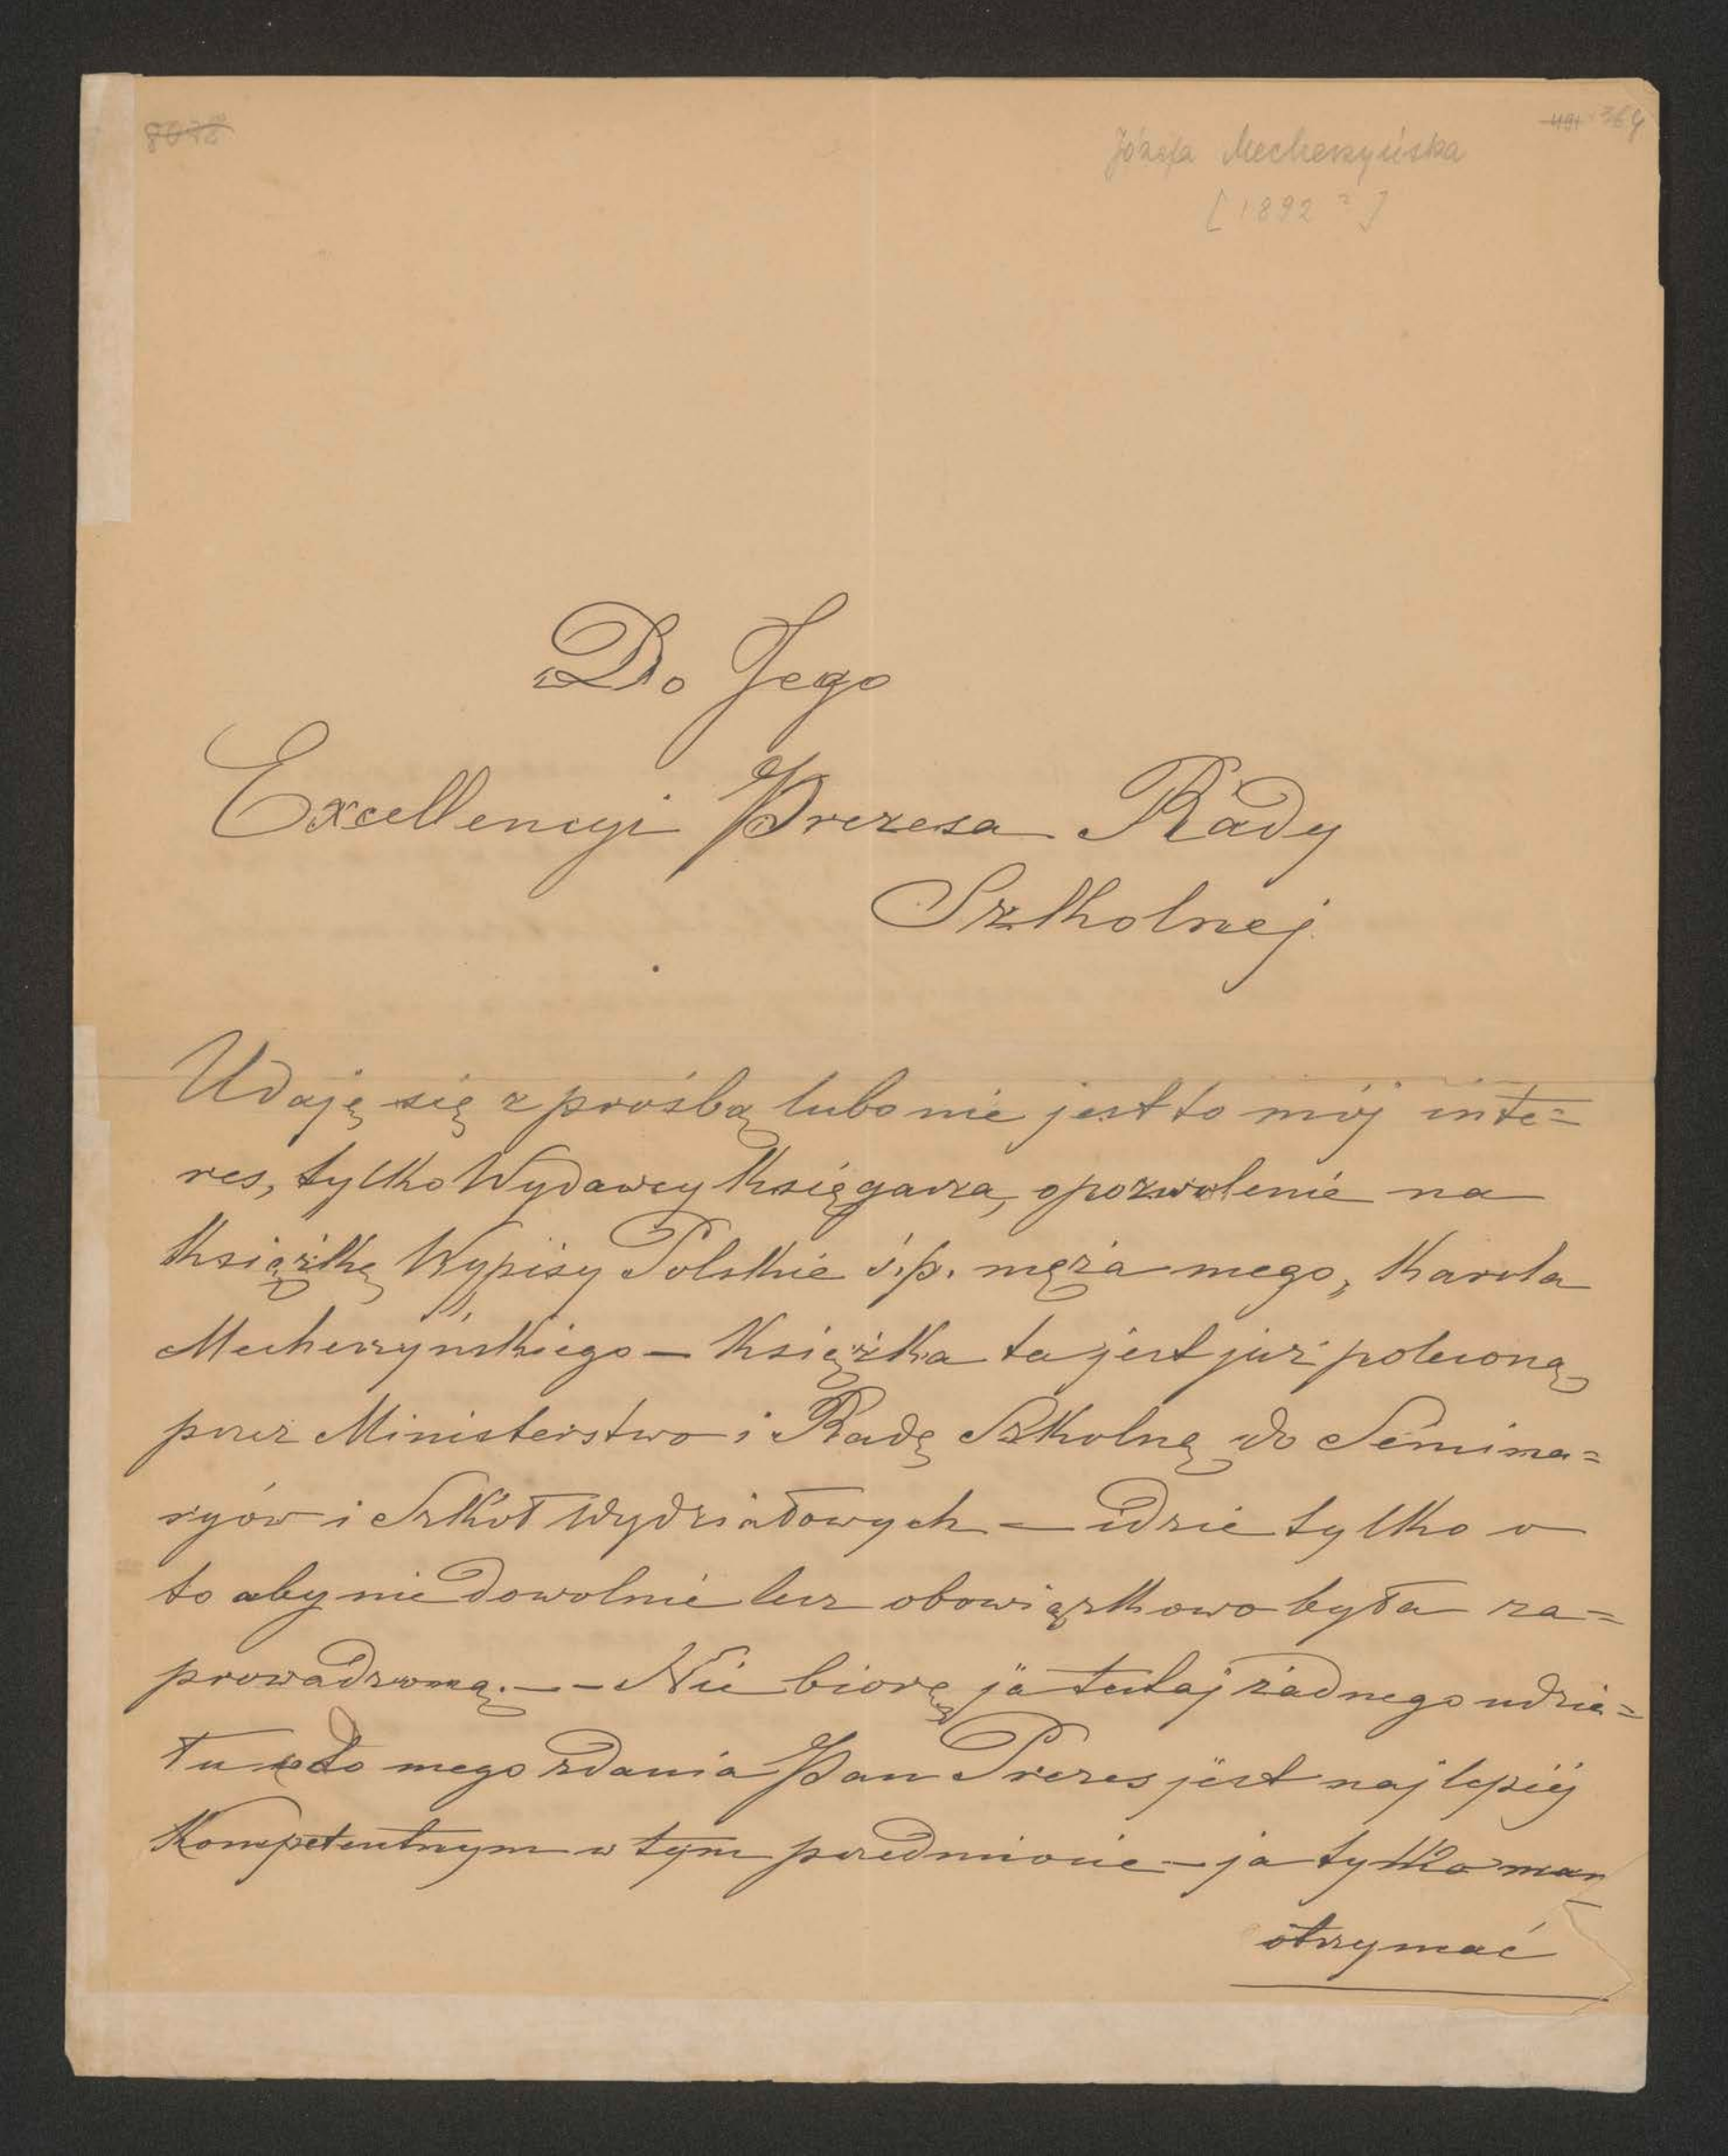 Józefa Mecherzyńska
364
[1892?]
Do Jego
Excellencyi Prezesa Rady
Szkolnej
Udaję się z prośbą lubo nie jest to mój inte=
res, tylko Wydawcy Księgarza, o pozwolenie na
Książkę Wypisy Polskie ś.p. męża mego, Karola
Mecherzyńskiego – Książka ta jest już poleconą
przez Ministerstwo i Radę Szkolną do Semina=
ryów i Szkół Wydziałowych – idzie tylko o
to aby nie dowolnie lecz obowiązkowo była za=
prowadzoną. – – Nie biorę ja tutaj żadnego udzia=
łu do mego zdania Pan Prezes jest najlepiej
Kompetentnym w tym przedmiocie – ja tylko mam
otrzymać